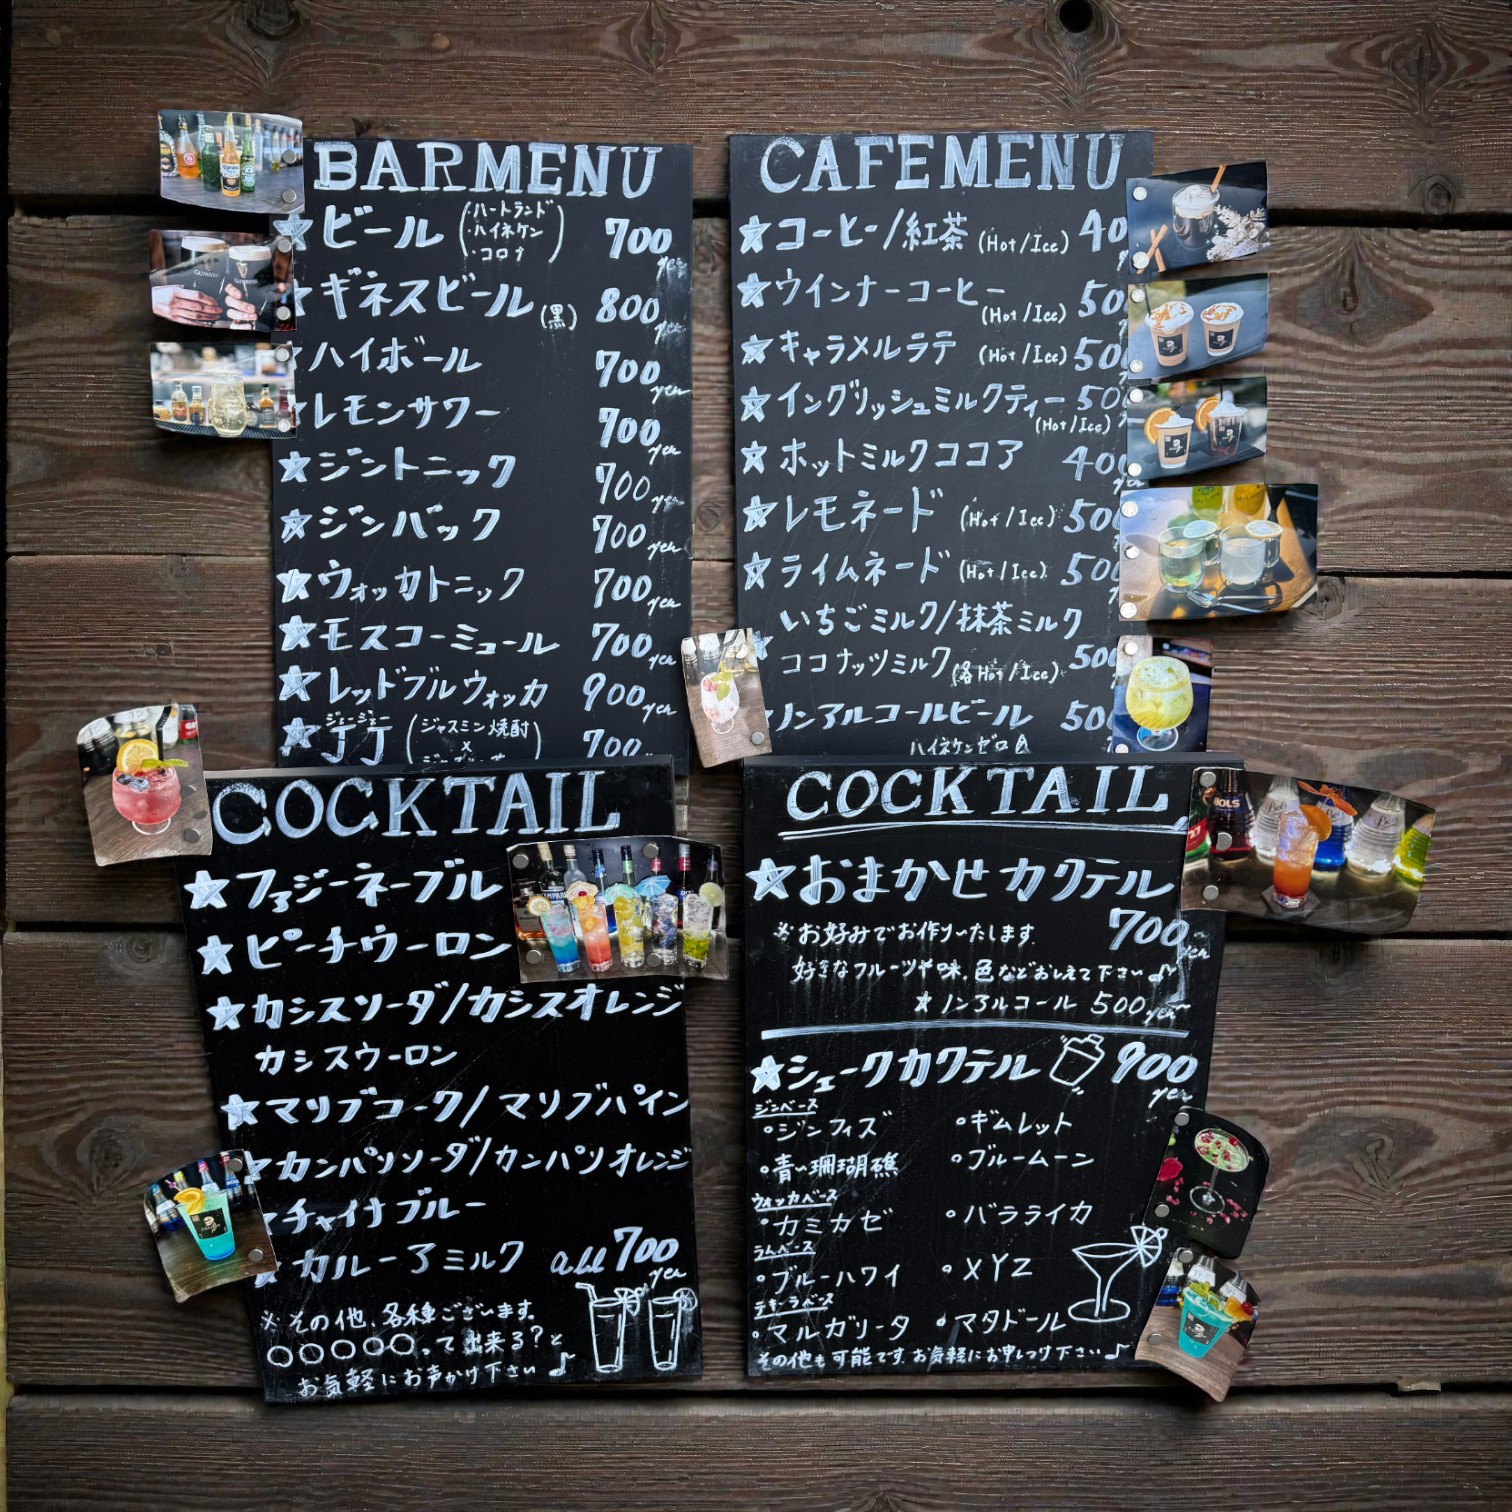 BARMENU
★ビール (・ハートランド ・ハイネケン ・コロナ) 700 yen
★ギネスビール (黒) 800 yen
ハイボール 700 yen
レモンサワー 700 yen
★ジントニック 700 yen
★ジンバック 700 yen
★ウォッカトニック 700 yen
★モスコーミュール 700 yen
★レッドブルウォッカ 900 yen
ジェージェー
★JJ (ジャスミン焼酎 × 700
CAFEMENU
★コーヒー/紅茶 (Hot/Ice) 40
★ウインナーコーヒー (Hot/Ice) 50
★キャラメルラテ (Hot/Ice) 50
★イングリッシュミルクティー 50
(Hot/Ice)
★ホットミルクココア 400
★レモネード (Hot/Ice) 500
★ライムネード (Hot/Ice) 500
いちごミルク/抹茶ミルク
ココナッツミルク (各Hot/Ice) 500
ノンアルコールビール 500
ハイネケンゼロ
COCKTAIL
★ファジーネーブル
★ピーチウーロン
★カシスソーダ/カシスオレンジ
カシスウーロン
★マリブコーク/マリブパイン
カンパリソーダ/カンパリオレンジ
チャイナブルー
カルーアミルク all 700 yen
※その他、各種ございます。
○○○○○って出来る?と
お気軽にお声がけ下さい♪
COCKTAIL
★おまかせカクテル
700 yen
※お好みでお作りいたします。
好きなフルーツや味、色などおしえて下さい♪
★ノンアルコール 500 yen~
★シェークカクテル 900 yen
ジンベース
・ジンフィズ ・ギムレット
・青い珊瑚礁 ・ブルームーン
ウォッカベース
・カミカゼ ・バラライカ
ラムベース
・ブルーハワイ ・XYZ
テキーラベース
・マルガリータ ・マタドール
その他も可能です。お気軽にお申しつけ下さい♪
GUINNESS
BOLS